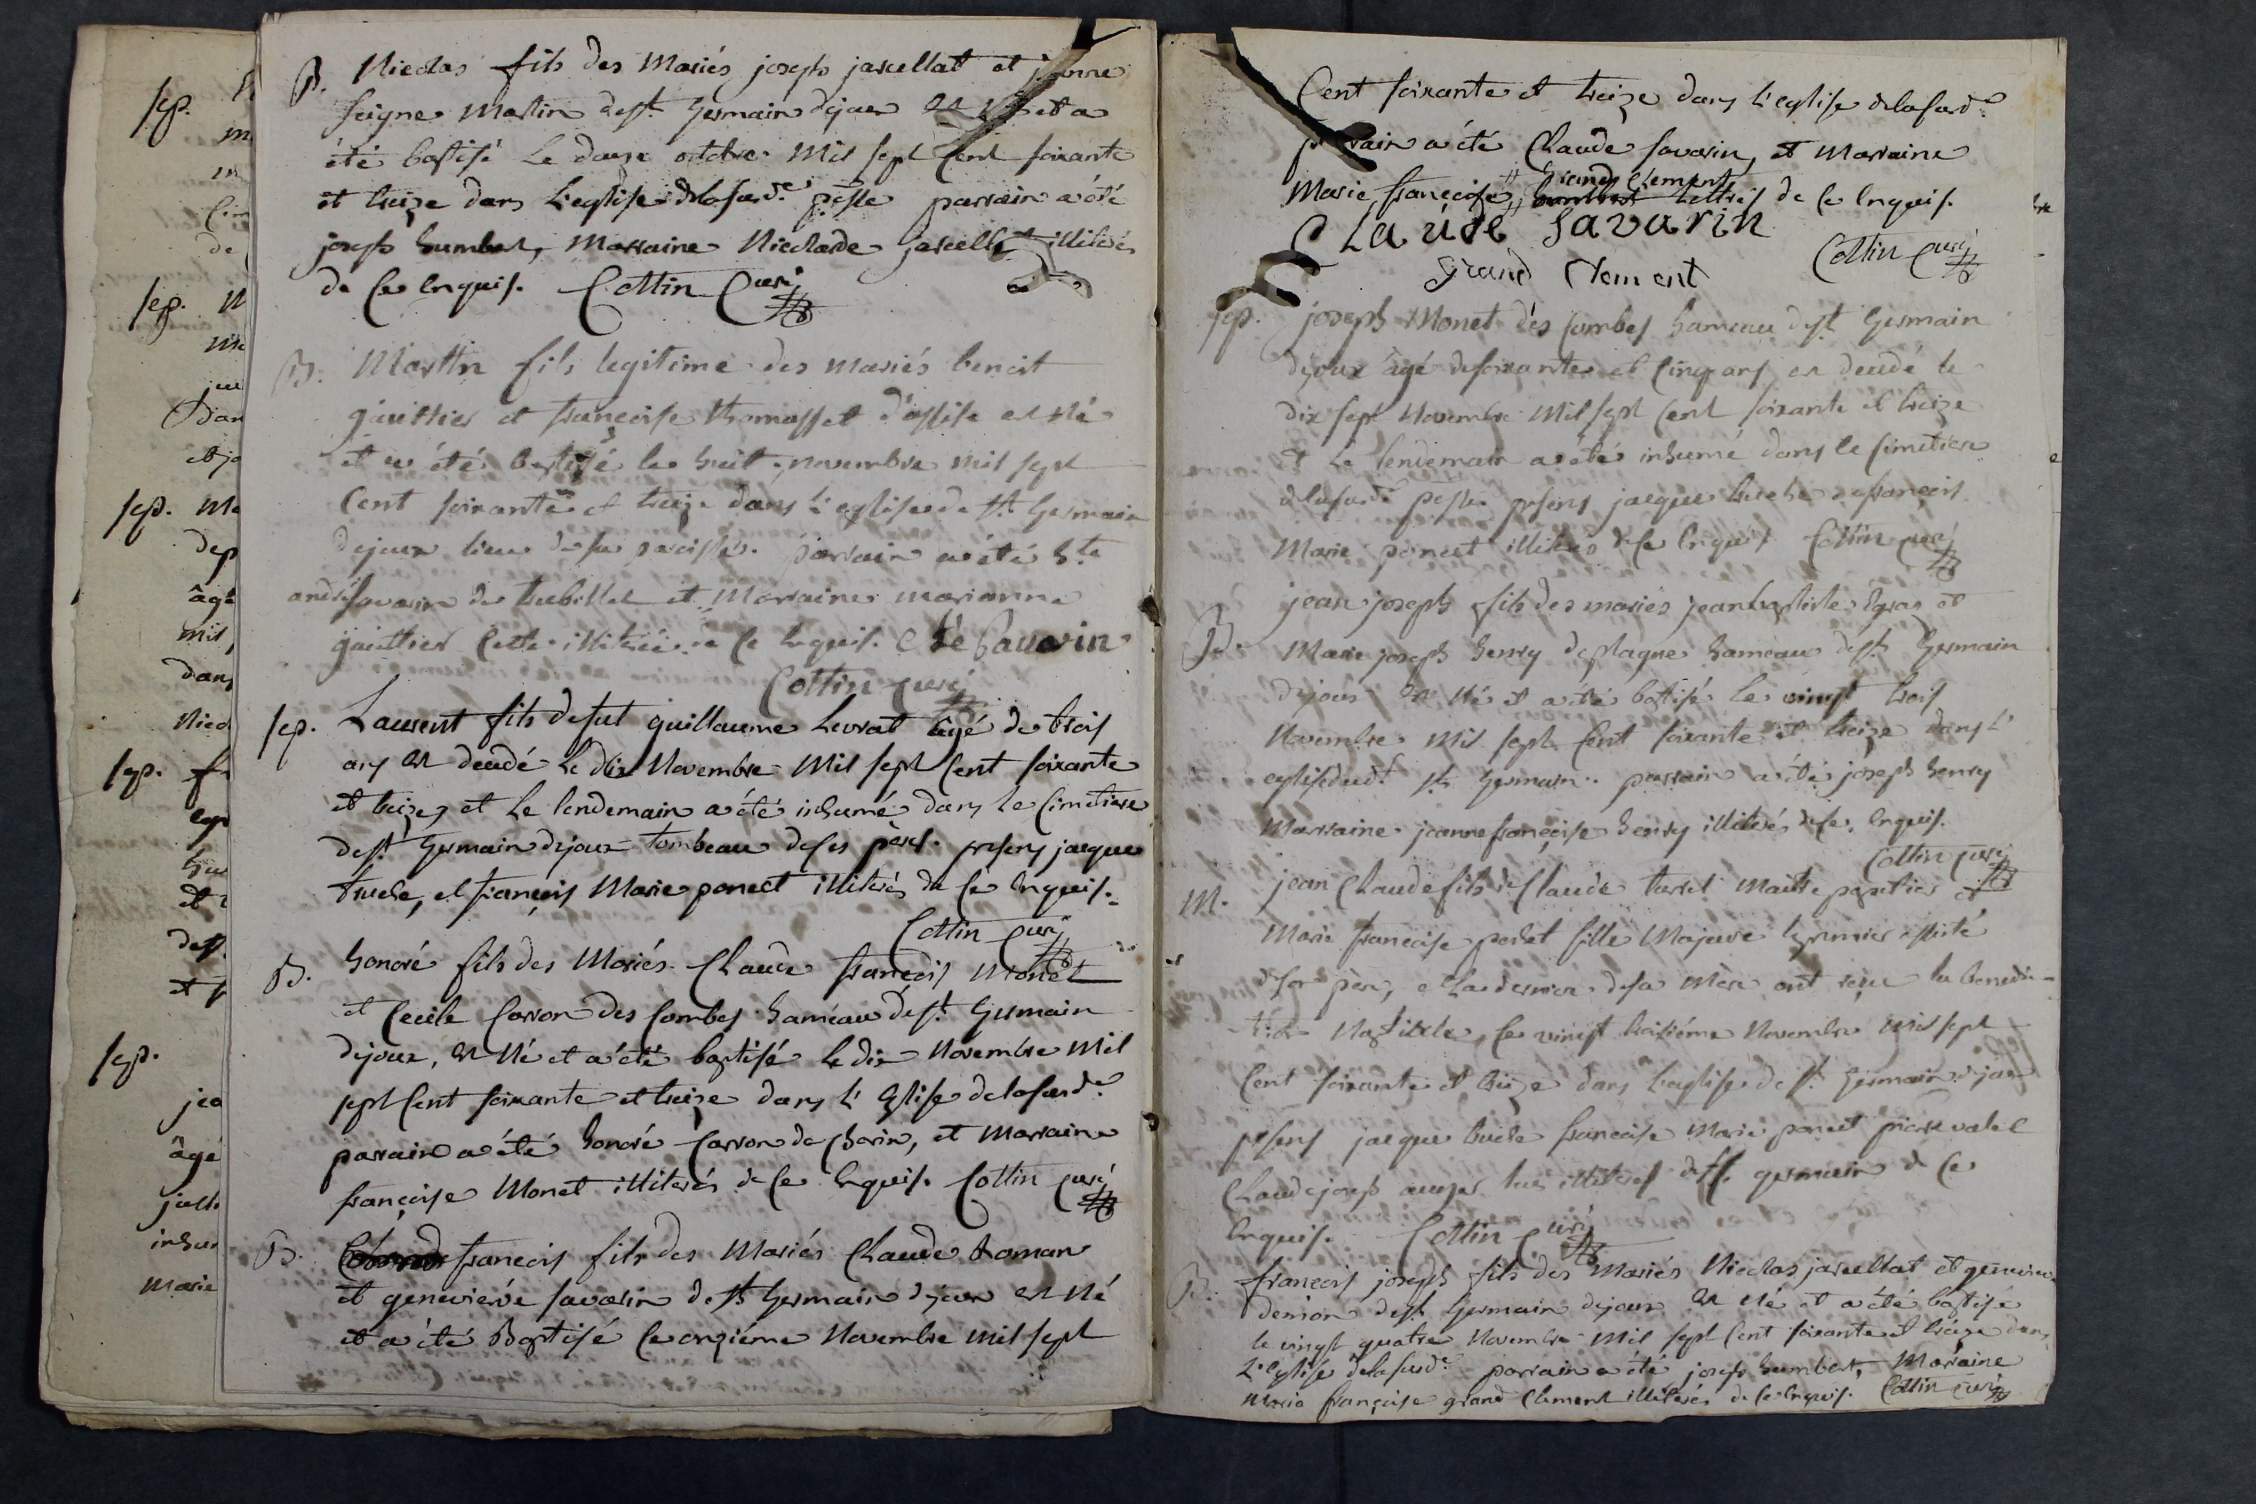 B. Nicolas fils des Mariés joseph jascellat et jeanne
Seigne Martin de st. Germain dejoux est né et a
été baptisé le douze octobre Mil sept Cent soixante
et treize dans L'eglise de la susd.e p̃sse parrain a été
joseph humbert, Marraine Nicolarde jascellat illiterés
de Ce enquis. Cottin Curé
B. Martin fils legitime des mariés benoit
gauthier et francoise thomasset d'assise est né
et a été baptisé le huit novembre mil sept
Cent soixante et treize dans l'eglise de st. Germain
dejoux lieu de sa parroisse. parrain a été h.te
andré savarin de trebillet et Marraine marianne
gauthier Cette illiterée de Ce Enquis. Savarin
Cottin curé
sep. Laurent fils de fut guillaume Levrat âgé de trois
ans est decedé Le dix Novembre Mil sept Cent soixante
et treize, et Le lendemain a été inhumé dans Le Cimetiere
de st. Germain dejoux tombeau de ses pères. presens jacque
truche, et françois Marie poncet illiterés de Ce Enquis.
Cottin Curé
B. honoré fils des Mariés Claude françois Monet
et Cecile Carron des Combes hameau de st. Germain
dejoux, est Né et a été baptisé Le dix Novembre Mil
sept Cent soixante et treize dans L'Eglise de la susd.e
parrain a été honoré Carron de Charin, et Marraine
françoise Monet illiterés de Ce Enquis. Cottin Curé
B. françois fils des Mariés Claude Roman
et genevieve savarin de st. Germain dejoux est Né
et a été Baptisé Le onziéme Novembre mil sept
Cent soixante et treize dans L'eglise de la susd.e
parrain a été Claude savarin, et Marraine
grand Clement
Marie françoise Lettrés de Ce Enquis.
Claude Savarin
Cottin Curé
grand Clement
sep. joseph Monet des Combes hameau de st. Germain
dejoux âgé de soixante et Cinq ans est decedé le
dix sept Novembre Mil sept Cent soixante et treize
et Le lendemain a été inhumé dans Le Cimetiere
de la susd.e p̃sse presens jacque truche et françois
Marie poncet illiterés de Ce Enquis Cottin Curé
jean joseph fils des mariés jean baptiste et
B. Marie joseph henry de plagne hameau de st. Germain
dejoux est Né et a été baptisé Le vingt trois
Novembre Mil sept Cent soixante et treize dans L'
eglise dud.t st. Germain. parrain a été joseph henry
Marraine jeanne françoise henry illiterés de Ce Enquis.
Cottin Curé
M. jean Claude fils de Claude turrel Maitre papetier et
Marie françoise fille Majeure Le premier assisté
de son père, et La derniere de sa Mère ont reçu La benedic-
tion Nuptiale, Ce vingt troisiéme Novembre mil sept
Cent soixante et treize dans L'eglise de st. Germain dejoux
presens jacque truche françoise Marie poncet pierre
Claude joseph tous illiterés de st. germain de Ce
Enquis. Cottin Curé
B. françois joseph fils des Mariés Nicolas jascellat et genevieve
de st. Germain dejoux est Né et a été baptisé
Le vingt quatre Novembre Mil sept Cent soixante et treize dans
L'eglise de la susd.e parrain a été joseph humbert, Marraine
Marie françoise grand Clement illiterés de Ce Enquis. Cottin Curé